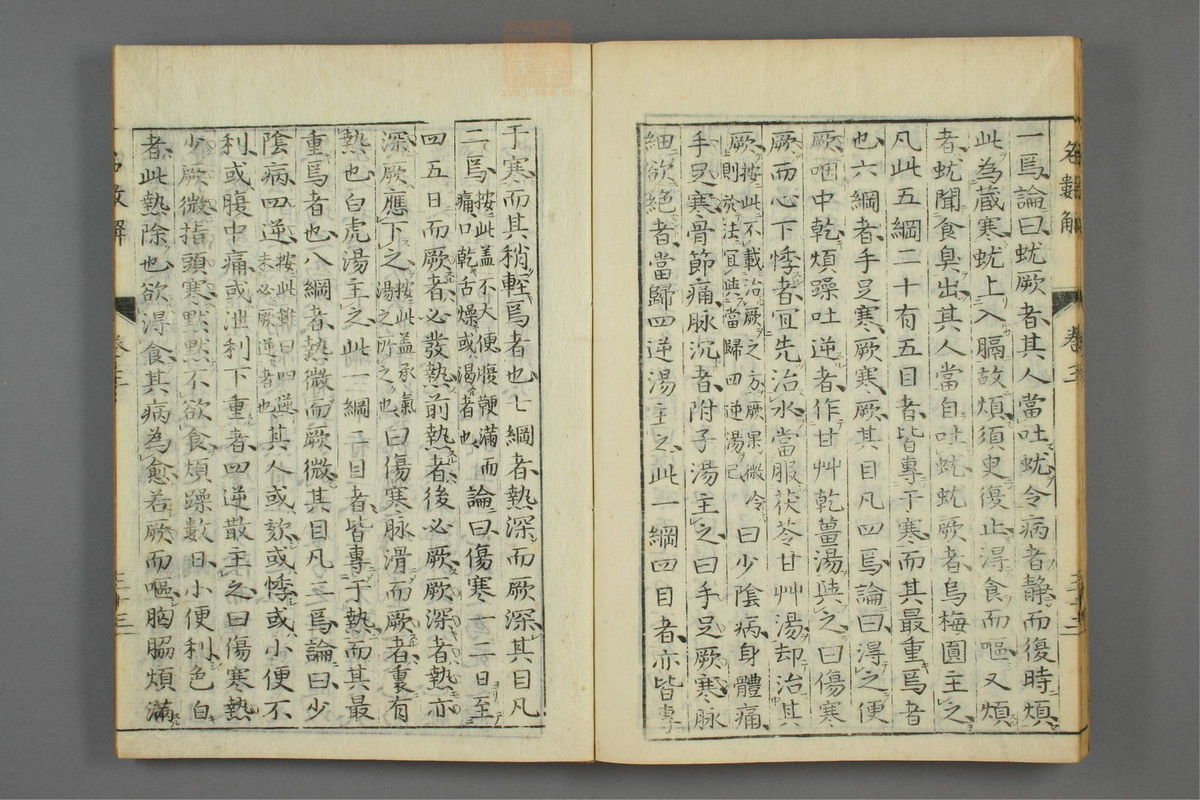 一焉論曰蚘厥者其人當吐蚘令病者静而復時煩
此為蔵寒蚘上入膈故煩須臾復止淂食而嘔又煩
者蚘聞食臭出其人當自吐蚘蚘厥者烏梅圓主之
凡此五綱二十有五目者皆專于寒而其最重焉者
也六綱者手足寒厥寒厥其目凡四焉論曰淂之便
厥咽中乾煩躁吐逆者作甘艸乾薑湯與之曰傷寒
厥而心下悸者宜先治水當服茯苓甘艸湯却治其
厥按此不載治厥之方厥果微令
則於法宜與當歸四逆湯已曰少陰病身體痛
手足寒骨節痛脉沉者附子湯主之曰手足厥寒脉
細欲絶者當歸四逆湯主之此一綱四目者亦皆專
名數解
卷三
三十二
于寒而其稍輕焉者也七綱者熱深而厥深其目凡
二焉按此盖不大便腹鞕滿而
痛口乾舌燥或渴者也論曰傷寒一二日至
四五日而厥者必發熱前熱者後必厥厥深者熱亦
深厥應下之按此盖承氣
湯之所之也曰傷寒脉滑而厥者裏有
熱也白虎湯主之此一綱二目者皆專于熱而其最
重焉者也八綱者熱微而厥微其目凡三焉論曰少
陰病四逆按此雖曰四逆
未必厥逆者也其人或欬或悸或小便不
利或腹中痛或泄利下重者四逆散主之曰傷寒熱
少厥微指頭寒黙黙不欲食煩躁數日小便利色白
者此熱除也欲淂食其病為愈若厥而嘔胸脇煩滿
名數解
卷之三
三十三